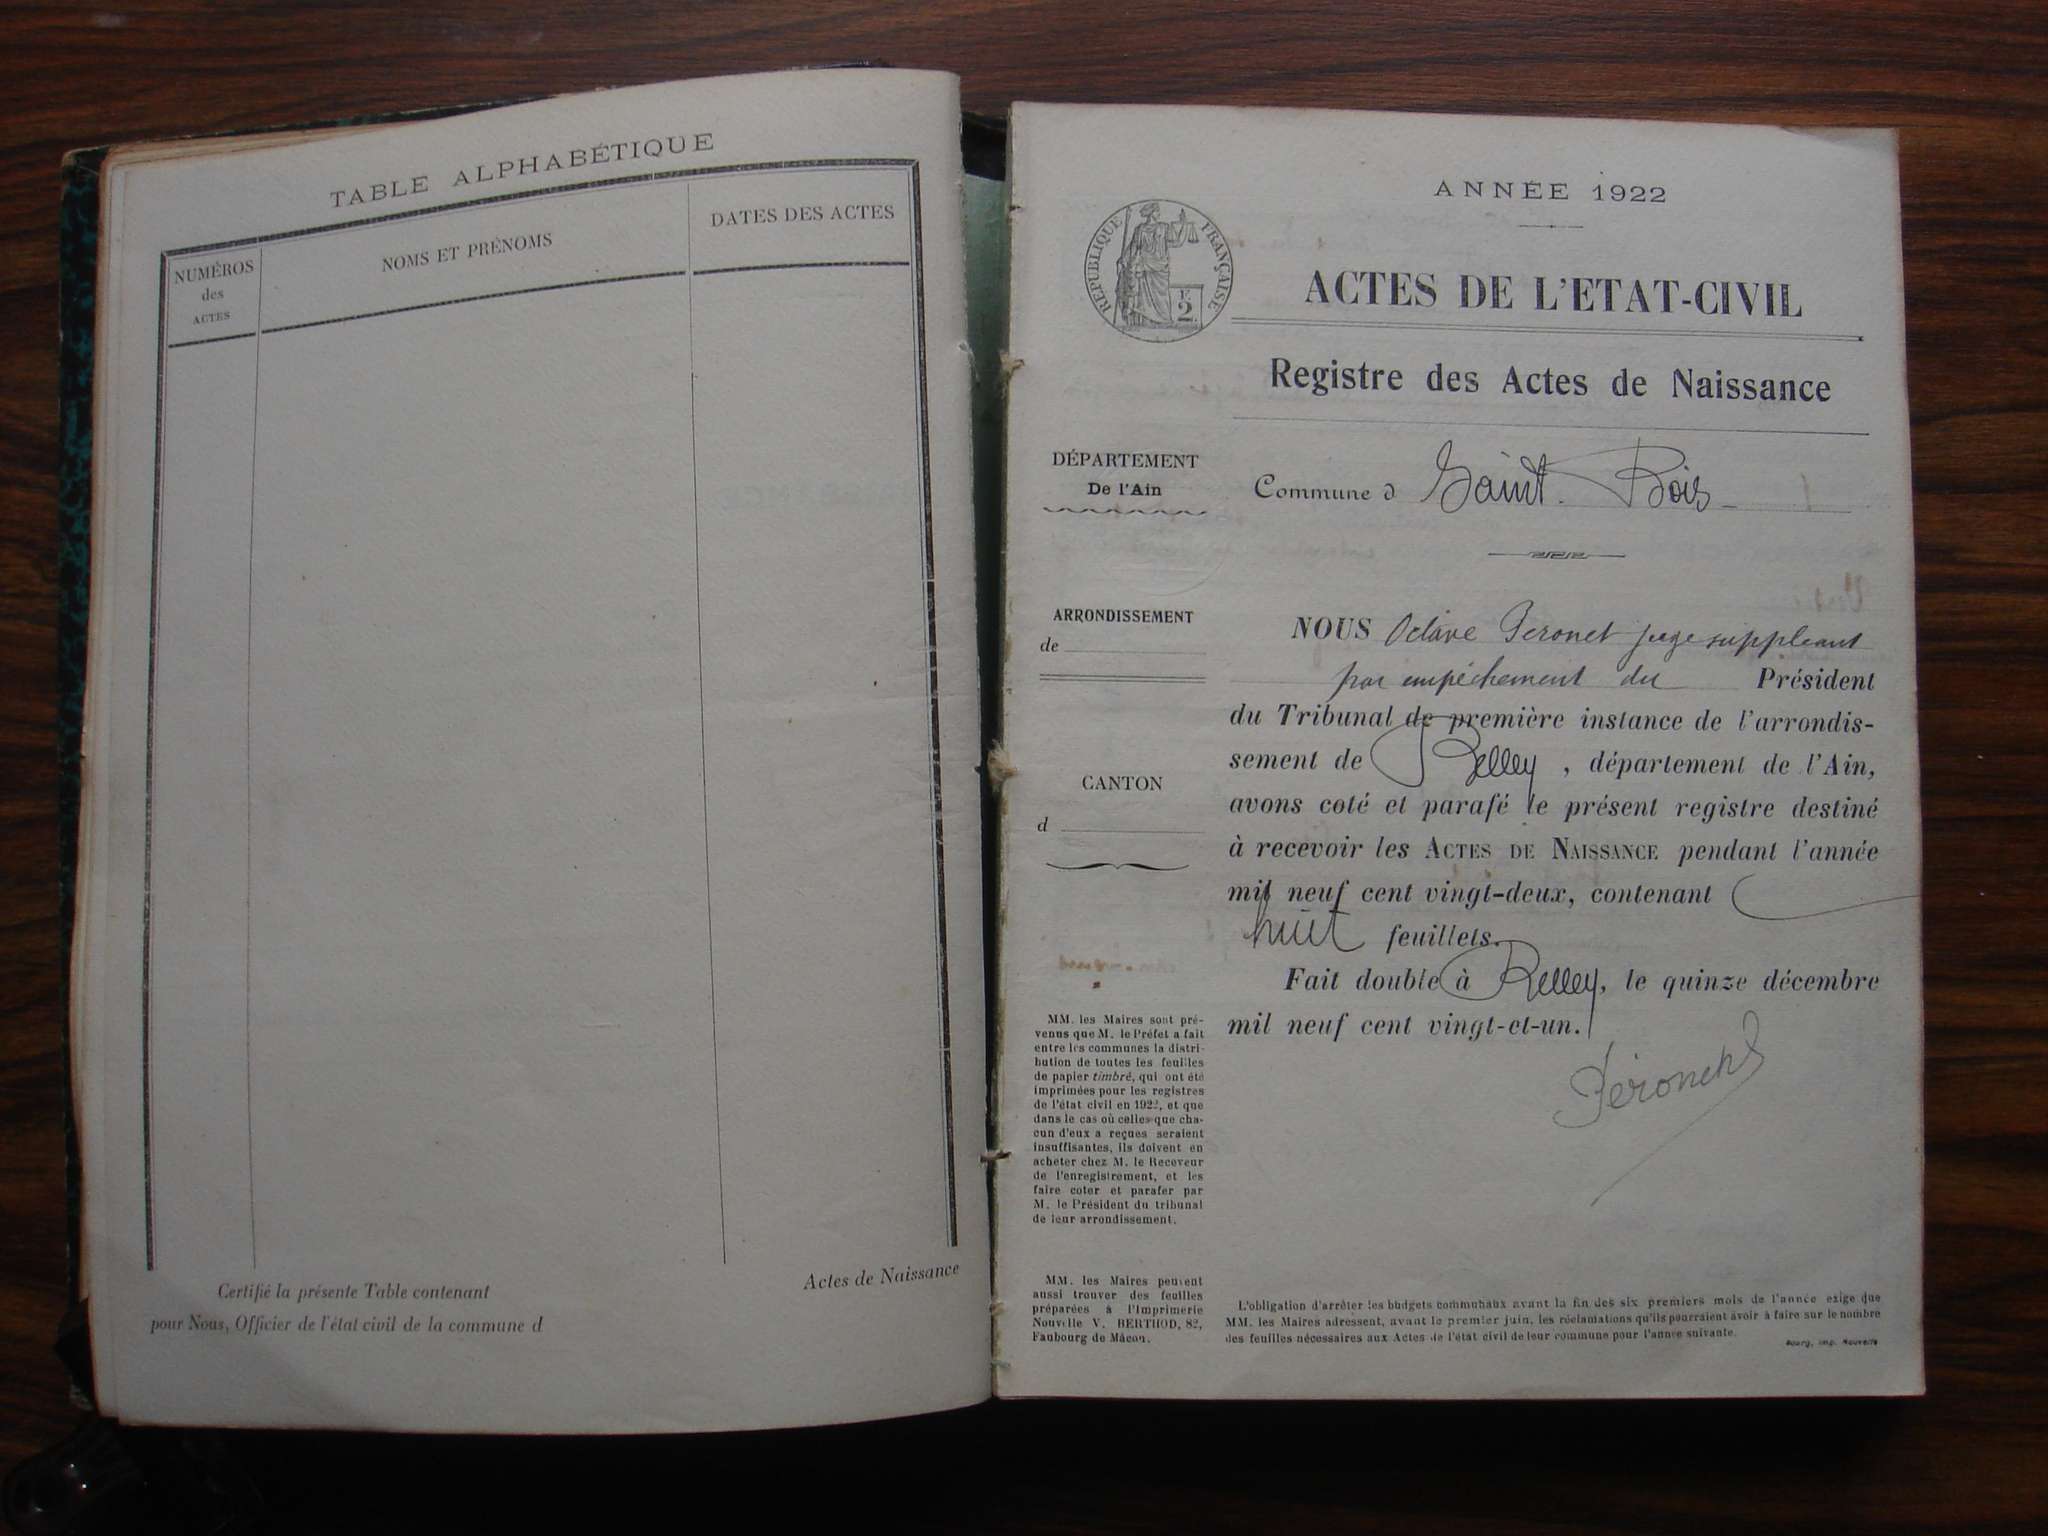 TABLE ALPHABÉTIQUE
NUMÉROS
des
ACTES
NOMS ET PRÉNOMS
DATES DES ACTES
Certifié la présente Table contenant
Actes de Naissance
pour Nous, Officier de l'état civil de la commune d
ANNÉE 1922
RÉPUBLIQUE FRANÇAISE
F.
2.
ACTES DE L'ETAT-CIVIL
Registre des Actes de Naissance
DÉPARTEMENT
De l'Ain
Commune d Saint-Bois
ARRONDISSEMENT
de
CANTON
d
MM. les Maires sont pré-
venus que M. le Préfet a fait
entre les communes la distri-
bution de toutes les feuilles
de papier timbré, qui ont été
imprimées pour les registres
de l'état civil en 1922, et que
dans le cas où celles que cha-
cun d'eux a reçues seraient
insuffisantes, ils doivent en
acheter chez M. le Receveur
de l'enregistrement, et les
faire coter et parafer par
M. le Président du tribunal
de leur arrondissement.
MM. les Maires peuvent
aussi trouver des feuilles
préparées à l'Imprimerie
Nouvelle V. BERTHOD, 82,
Faubourg de Mâcon.
NOUS Octave Peronet juge suppléant
par empêchement du Président
du Tribunal de première instance de l'arrondis-
sement de Belley, département de l'Ain,
avons coté et parafé le présent registre destiné
à recevoir les ACTES DE NAISSANCE pendant l'année
mil neuf cent vingt-deux, contenant
huit feuillets.
Fait double à Belley, le quinze décembre
mil neuf cent vingt-et-un.
L'obligation d'arrêter les budgets communaux avant la fin des six premiers mois de l'année exige que
MM. les Maires adressent, avant le premier juin, les réclamations qu'ils pourraient avoir à faire sur le nombre
des feuilles nécessaires aux Actes de l'état civil de leur commune pour l'année suivante.
Bourg, Imp. Nouvelle